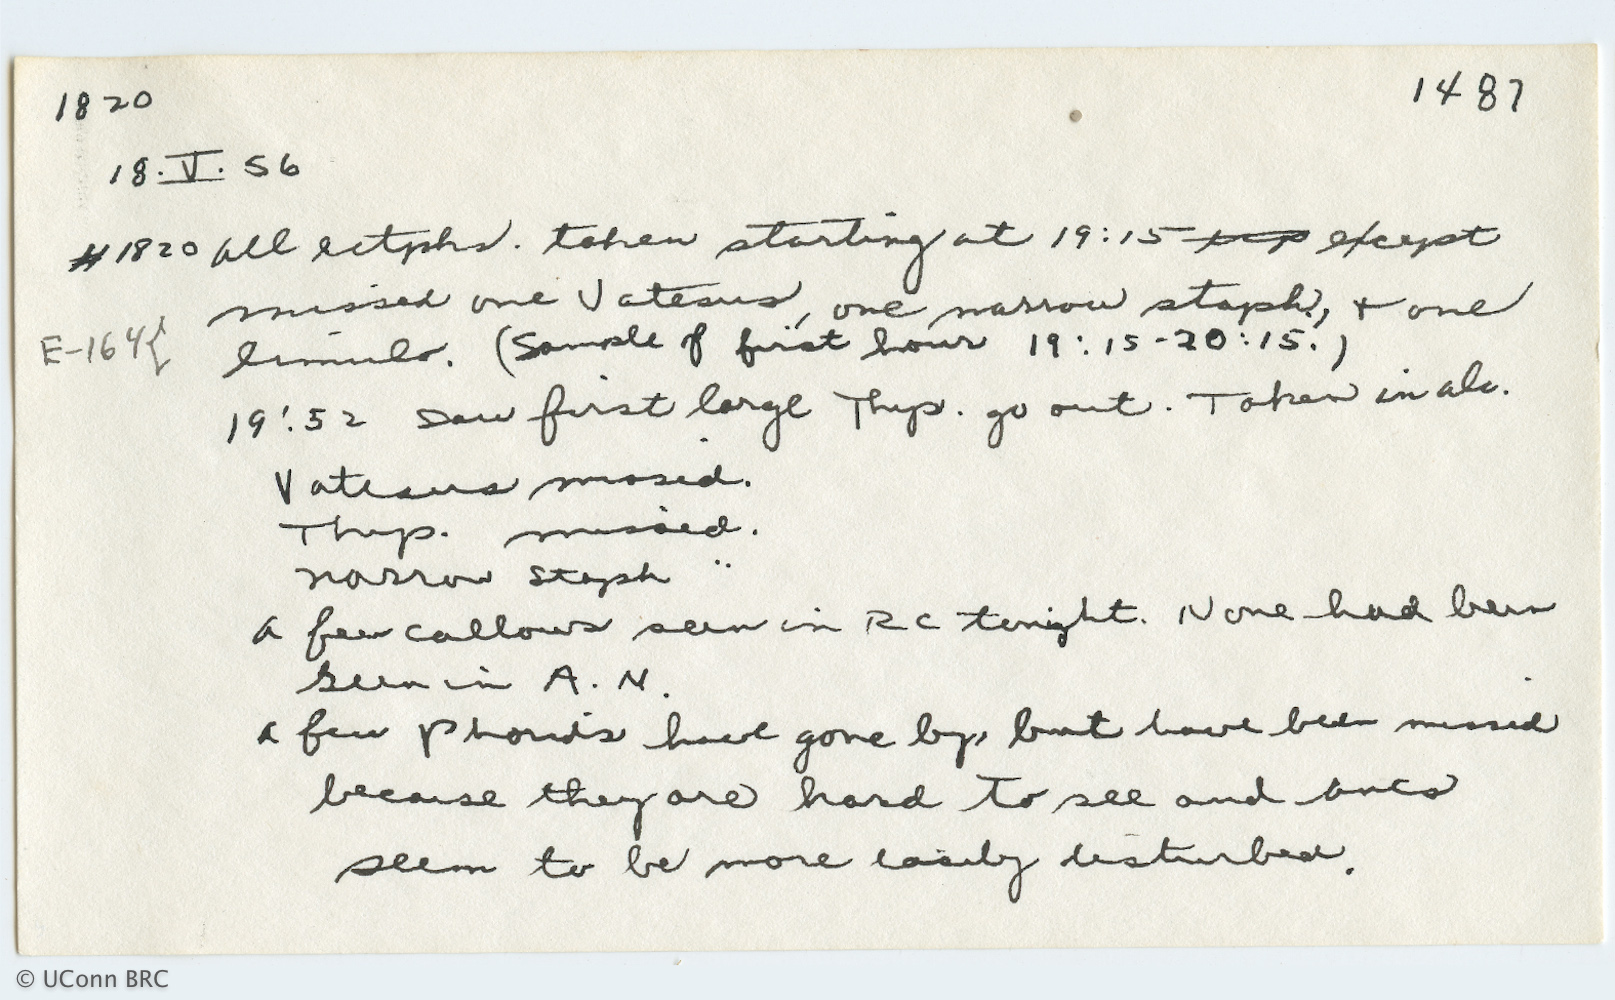 1820 1487
18.V.56
#1820 All ectphs. taken starting at 19:15 exp except
missed one Vatesus, one narrow staph., + one
E-164{ limulo. (Sample of first hour 19:15-20:15.)
19:52 Saw first large Thyp. go out. Taken in alc.
Vatesus missed.
Thyp. missed.
narrow staph "
A few callows seen in RC tonight. None had been
seen in A.N.
A few phorids have gone by, but have been missed
because they are hard to see and ants
seem to be more easily disturbed.
© UConn BRC